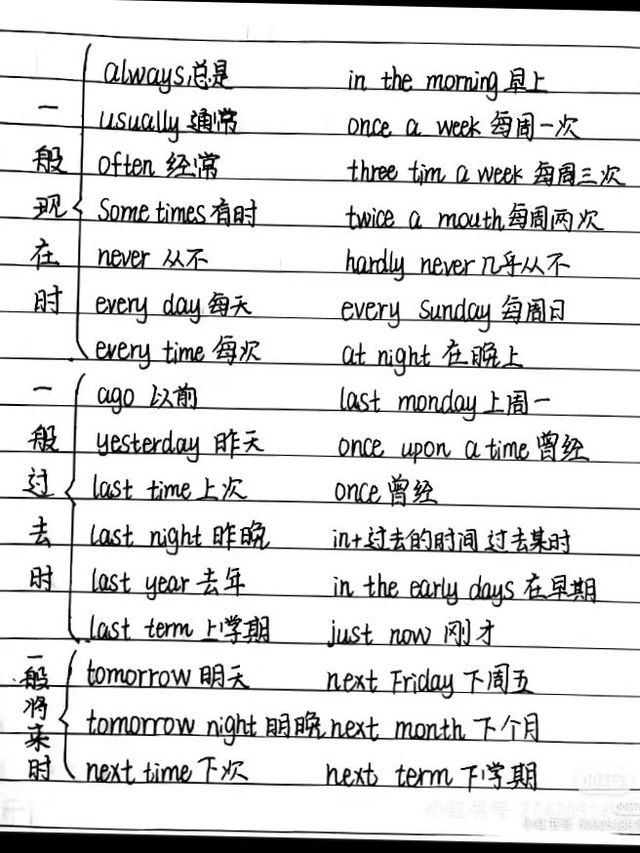 一般现在时
always 总是 in the morning 早上
usually 通常 once a week 每周一次
often 经常 three tim a week 每周三次
Sometimes 有时 twice a mouth 每周两次
never 从不 hardly never 几乎从不
every day 每天 every Sunday 每周日
every time 每次 at night 在晚上
一般过去时
ago 以前 last monday 上周一
yesterday 昨天 once upon a time 曾经
last time 上次 once 曾经
last night 昨晚 in+过去的时间 过去某时
last year 去年 in the early days 在早期
last term 上学期 just now 刚才
一般将来时
tomorrow 明天 next Friday 下周五
tomorrow night 明晚 next month 下个月
next time 下次 next term 下学期
小红书
小红书号
小红书号